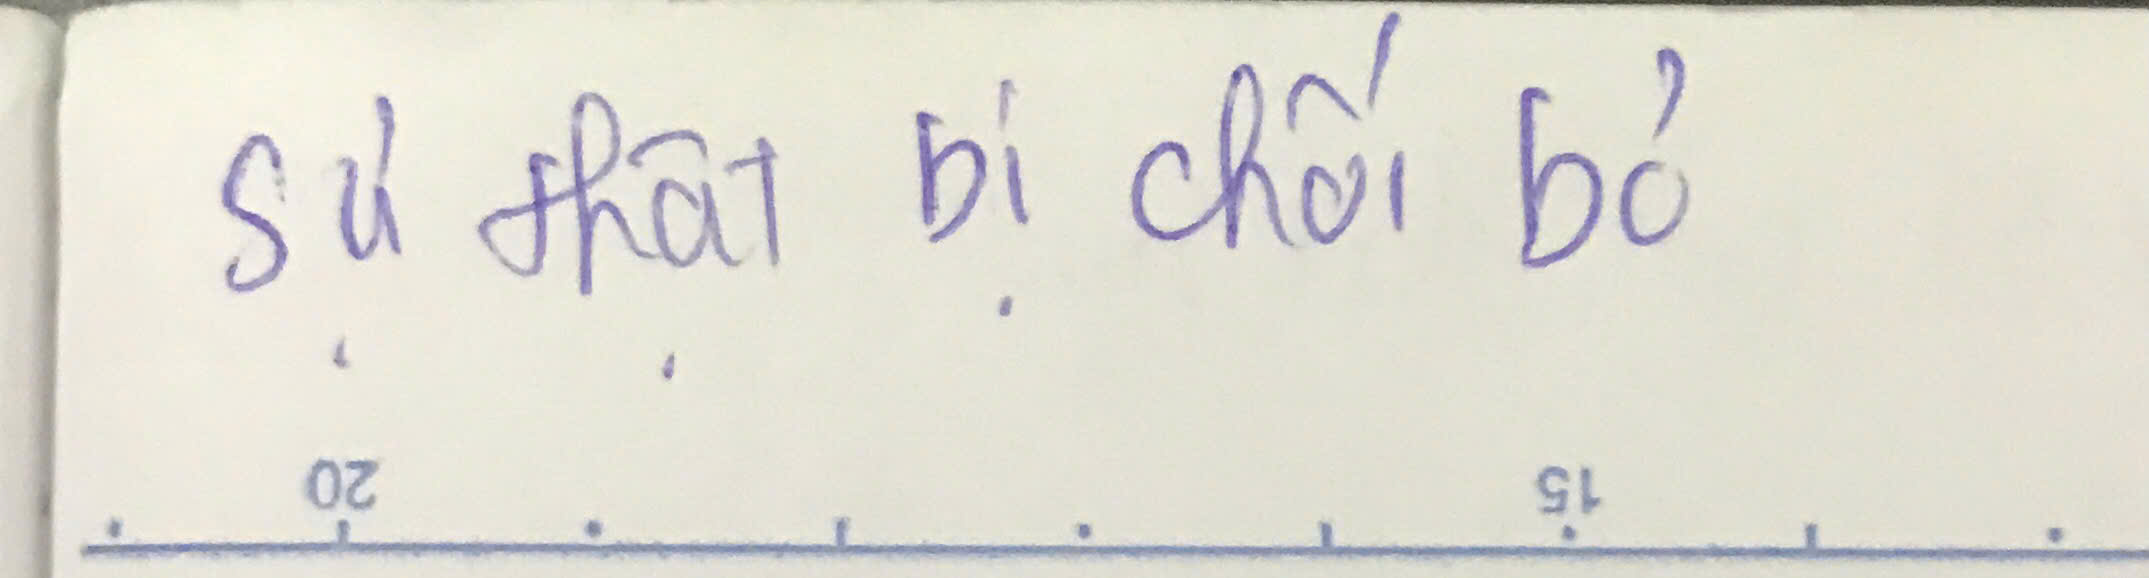 Sự thật bị chối bỏ
20 15